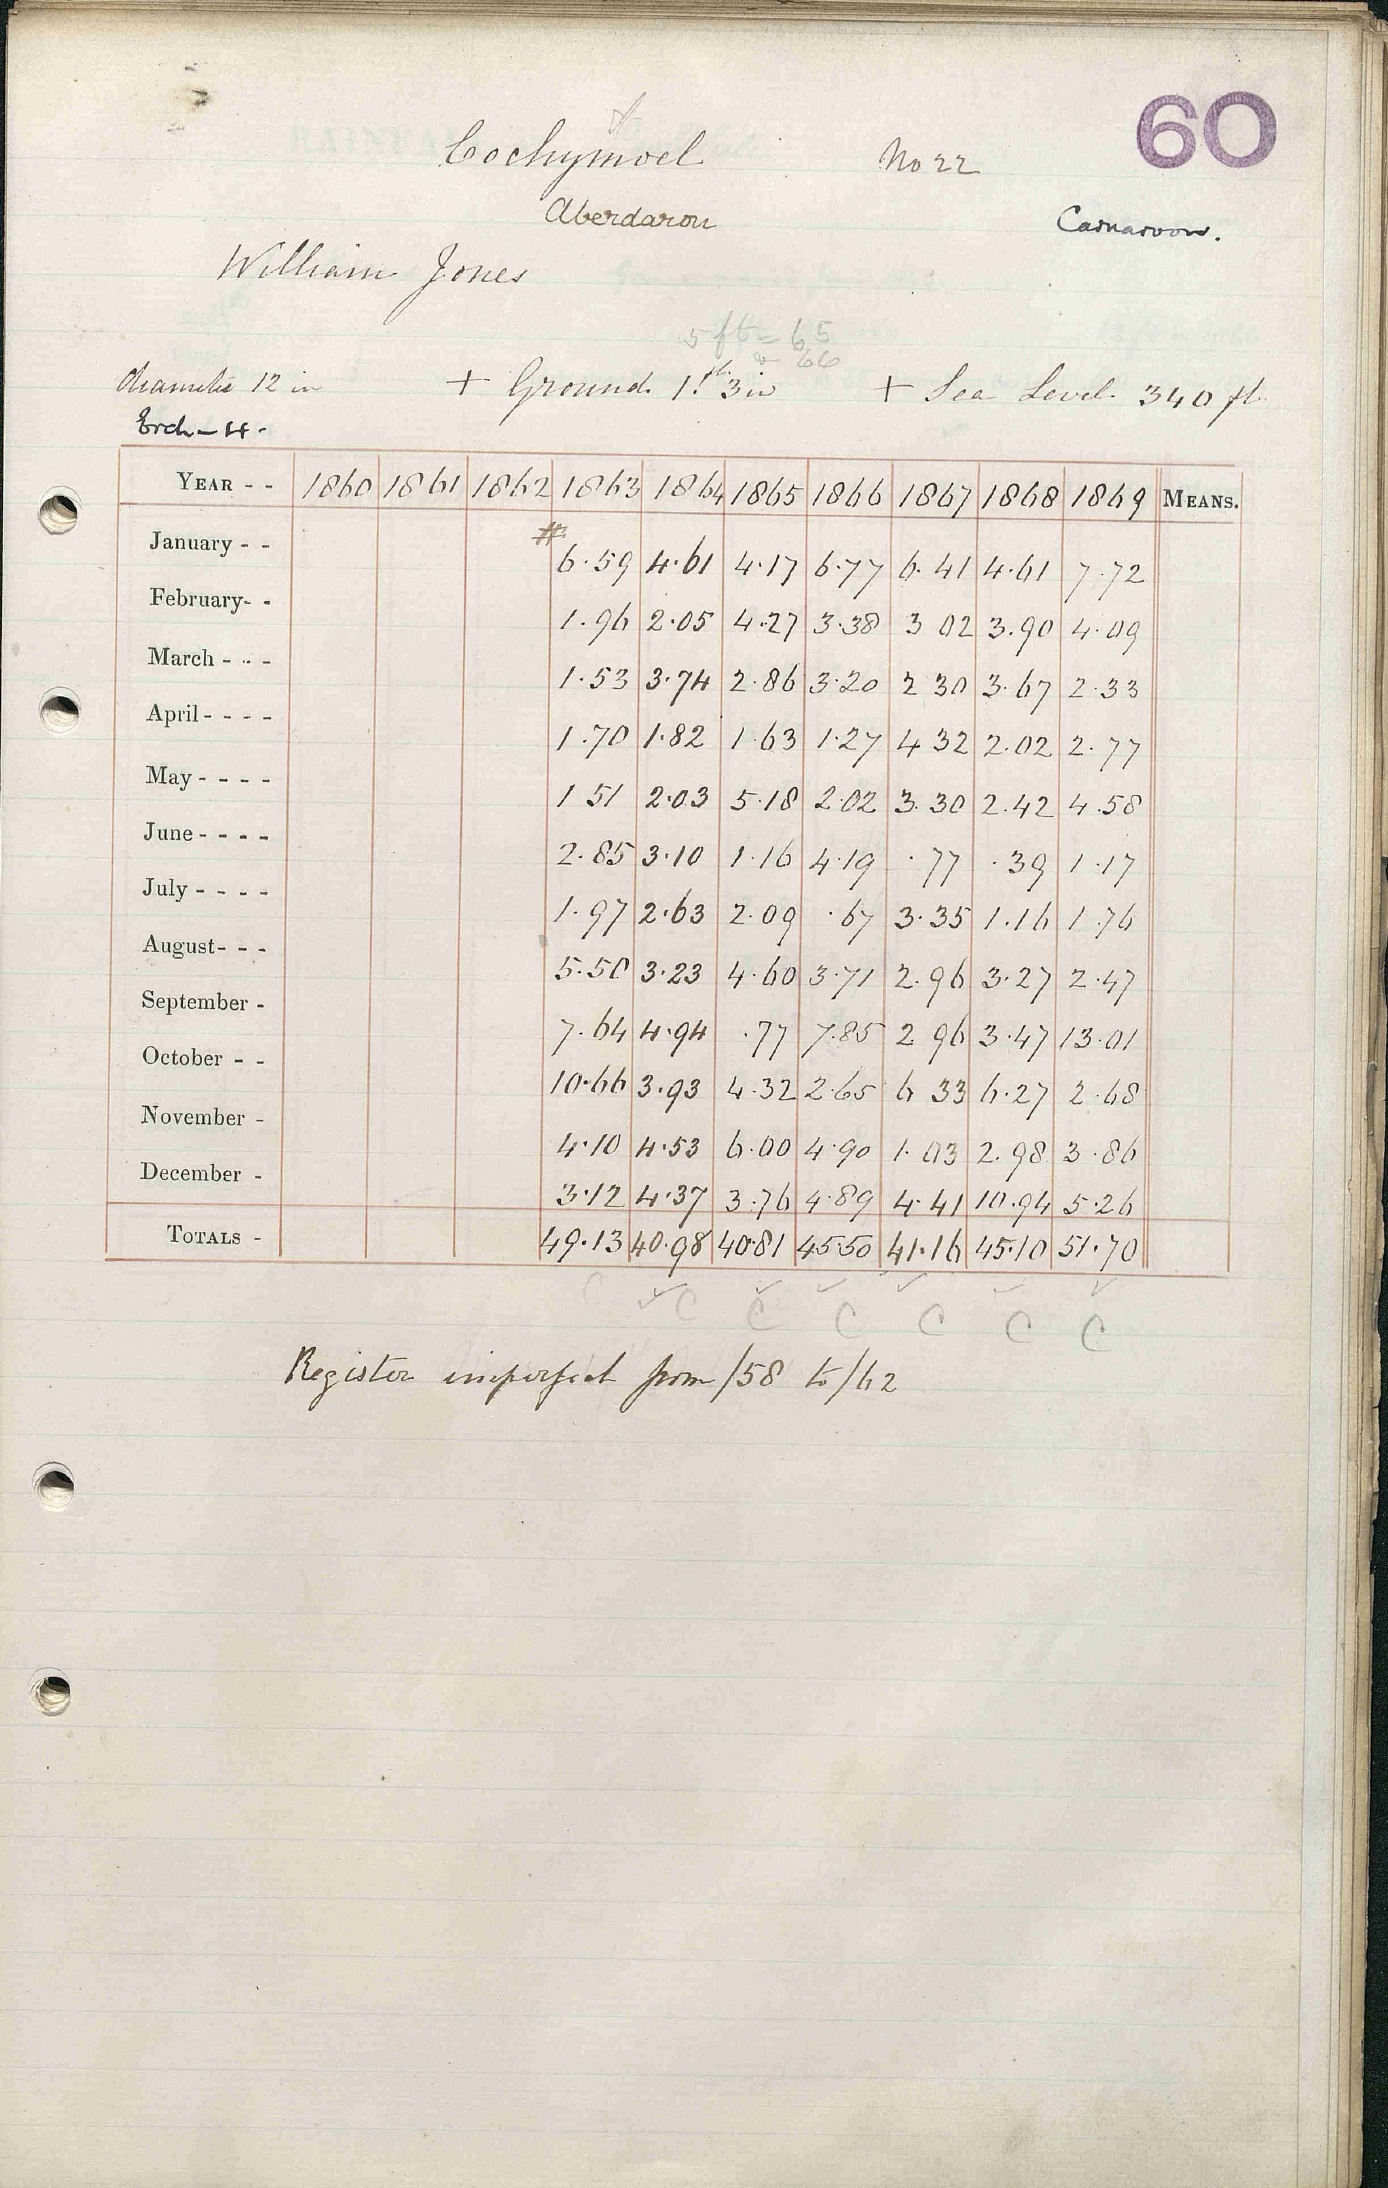 60
Cochymoel No 22
Aberdaron Carnarvon.
William Jones
5 ft = 65
& 66
diameter 12 in + Ground 1 ft. 3 in + Sea Level 340 ft.
YEAR - - 1860 1861 1862 1863 1864 1865 1866 1867 1868 1869 MEANS.
January - - # 6.59 4.61 4.17 6.77 6.41 4.61 7.72
February- - 1.96 2.05 4.27 3.38 3 02 3.90 4.09
March - - - 1.53 3.74 2.86 3.20 2 30 3.67 2.33
April - - - - 1.70 1.82 1.63 1.27 4 32 2.02 2.77
May - - - - 1 51 2.03 5.18 2.02 3.30 2.42 4.58
June - - - - 2.85 3.10 1.16 4.19 .77 .39 1.17
July - - - - 1.97 2.63 2.09 .67 3.35 1.16 1.76
August- - - 5.50 3.23 4.60 3.71 2.96 3.27 2.47
September - 7.64 4.94 .77 7.85 2 96 3.47 13.01
October - - 10.66 3.93 4.32 2.65 6 33 6.27 2.68
November - 4.10 4.53 6.00 4.90 1.03 2.98 3.86
December - 3.12 4.37 3.76 4.89 4.41 10.94 5.26
TOTALS - 49.13 40.98 40.81 45.50 41.16 45.10 51.70
C C C C C C C
Register imperfect from /58 to /62